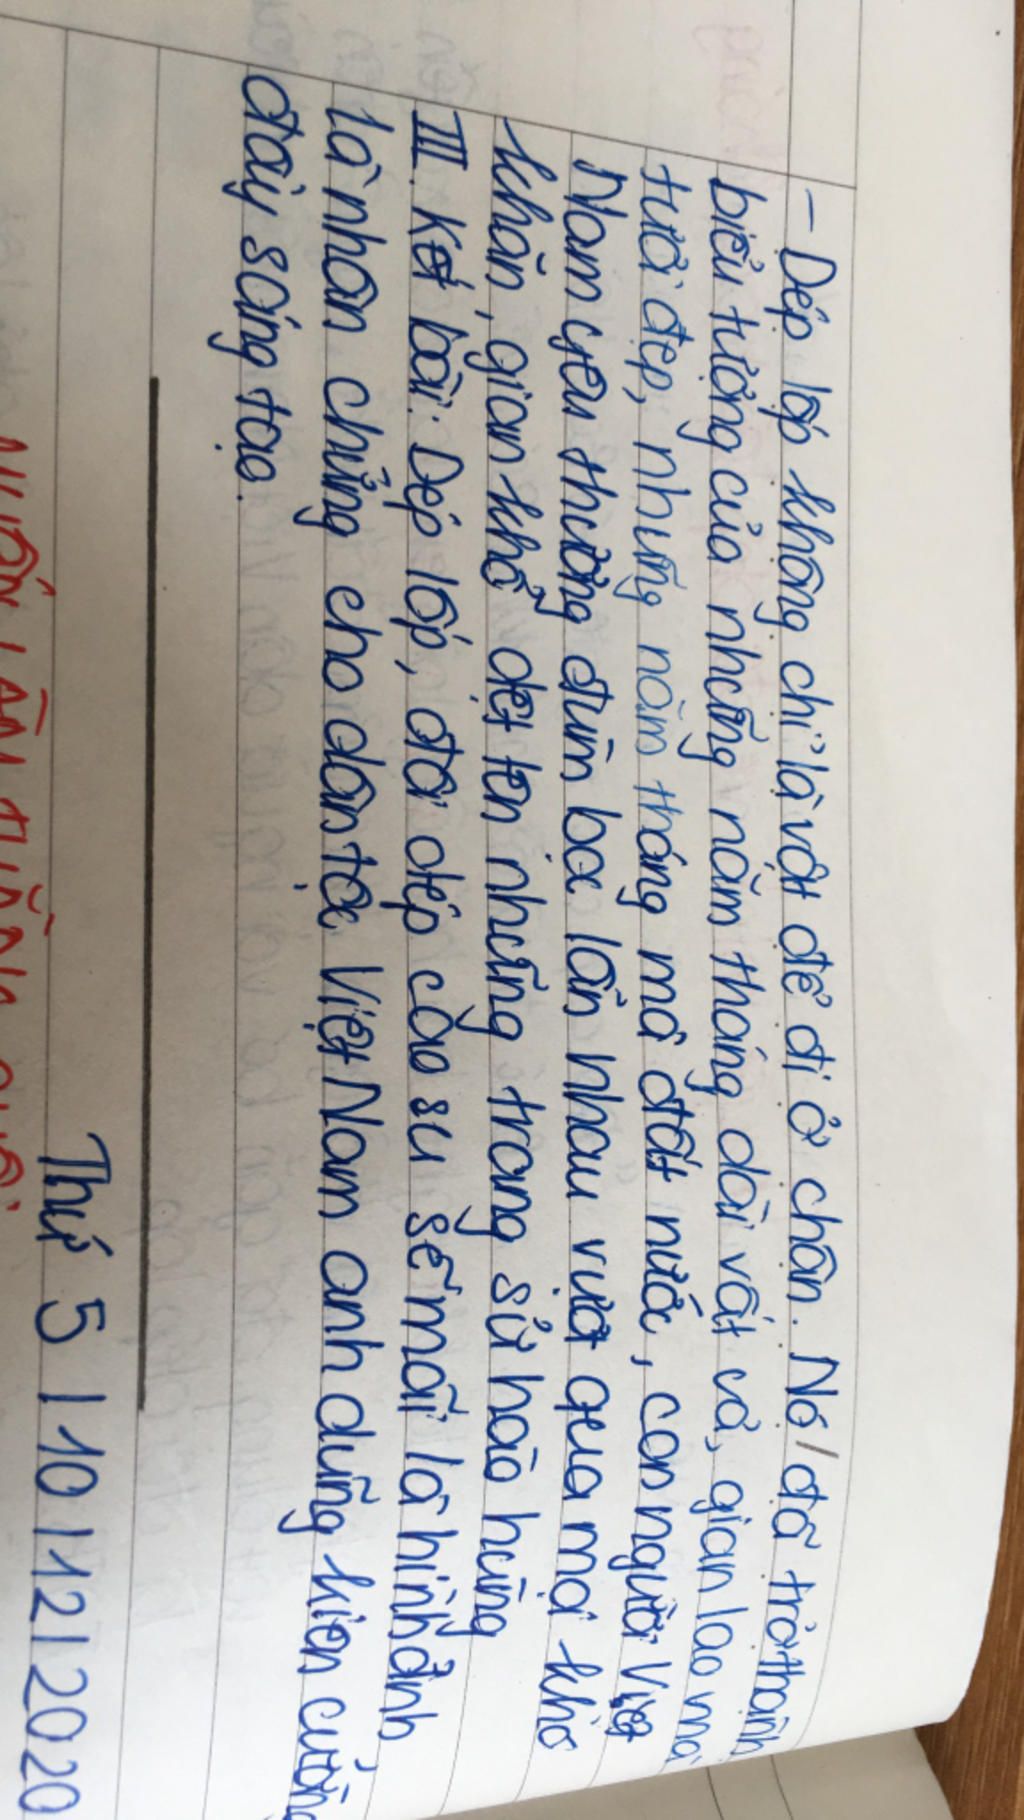 - Dép lốp không chỉ là vật để đi ở chân. Nó đã trở thành
biểu tượng của những năm tháng dài vất vả, gian lao mà
tươi đẹp, những năm tháng mà đất nước, con người Việt
Nam yêu thương đùm bọc lẫn nhau vượt qua mọi khó
khăn, gian khổ dệt lên những trang sử hào hùng
III. Kết bài: Dép lốp, đôi dép cao su sẽ mãi là hình ảnh
là nhân chứng cho dân tộc Việt Nam anh dũng kiên cường
đầy sáng tạo.
Thứ 5 | 10 | 12 | 2020